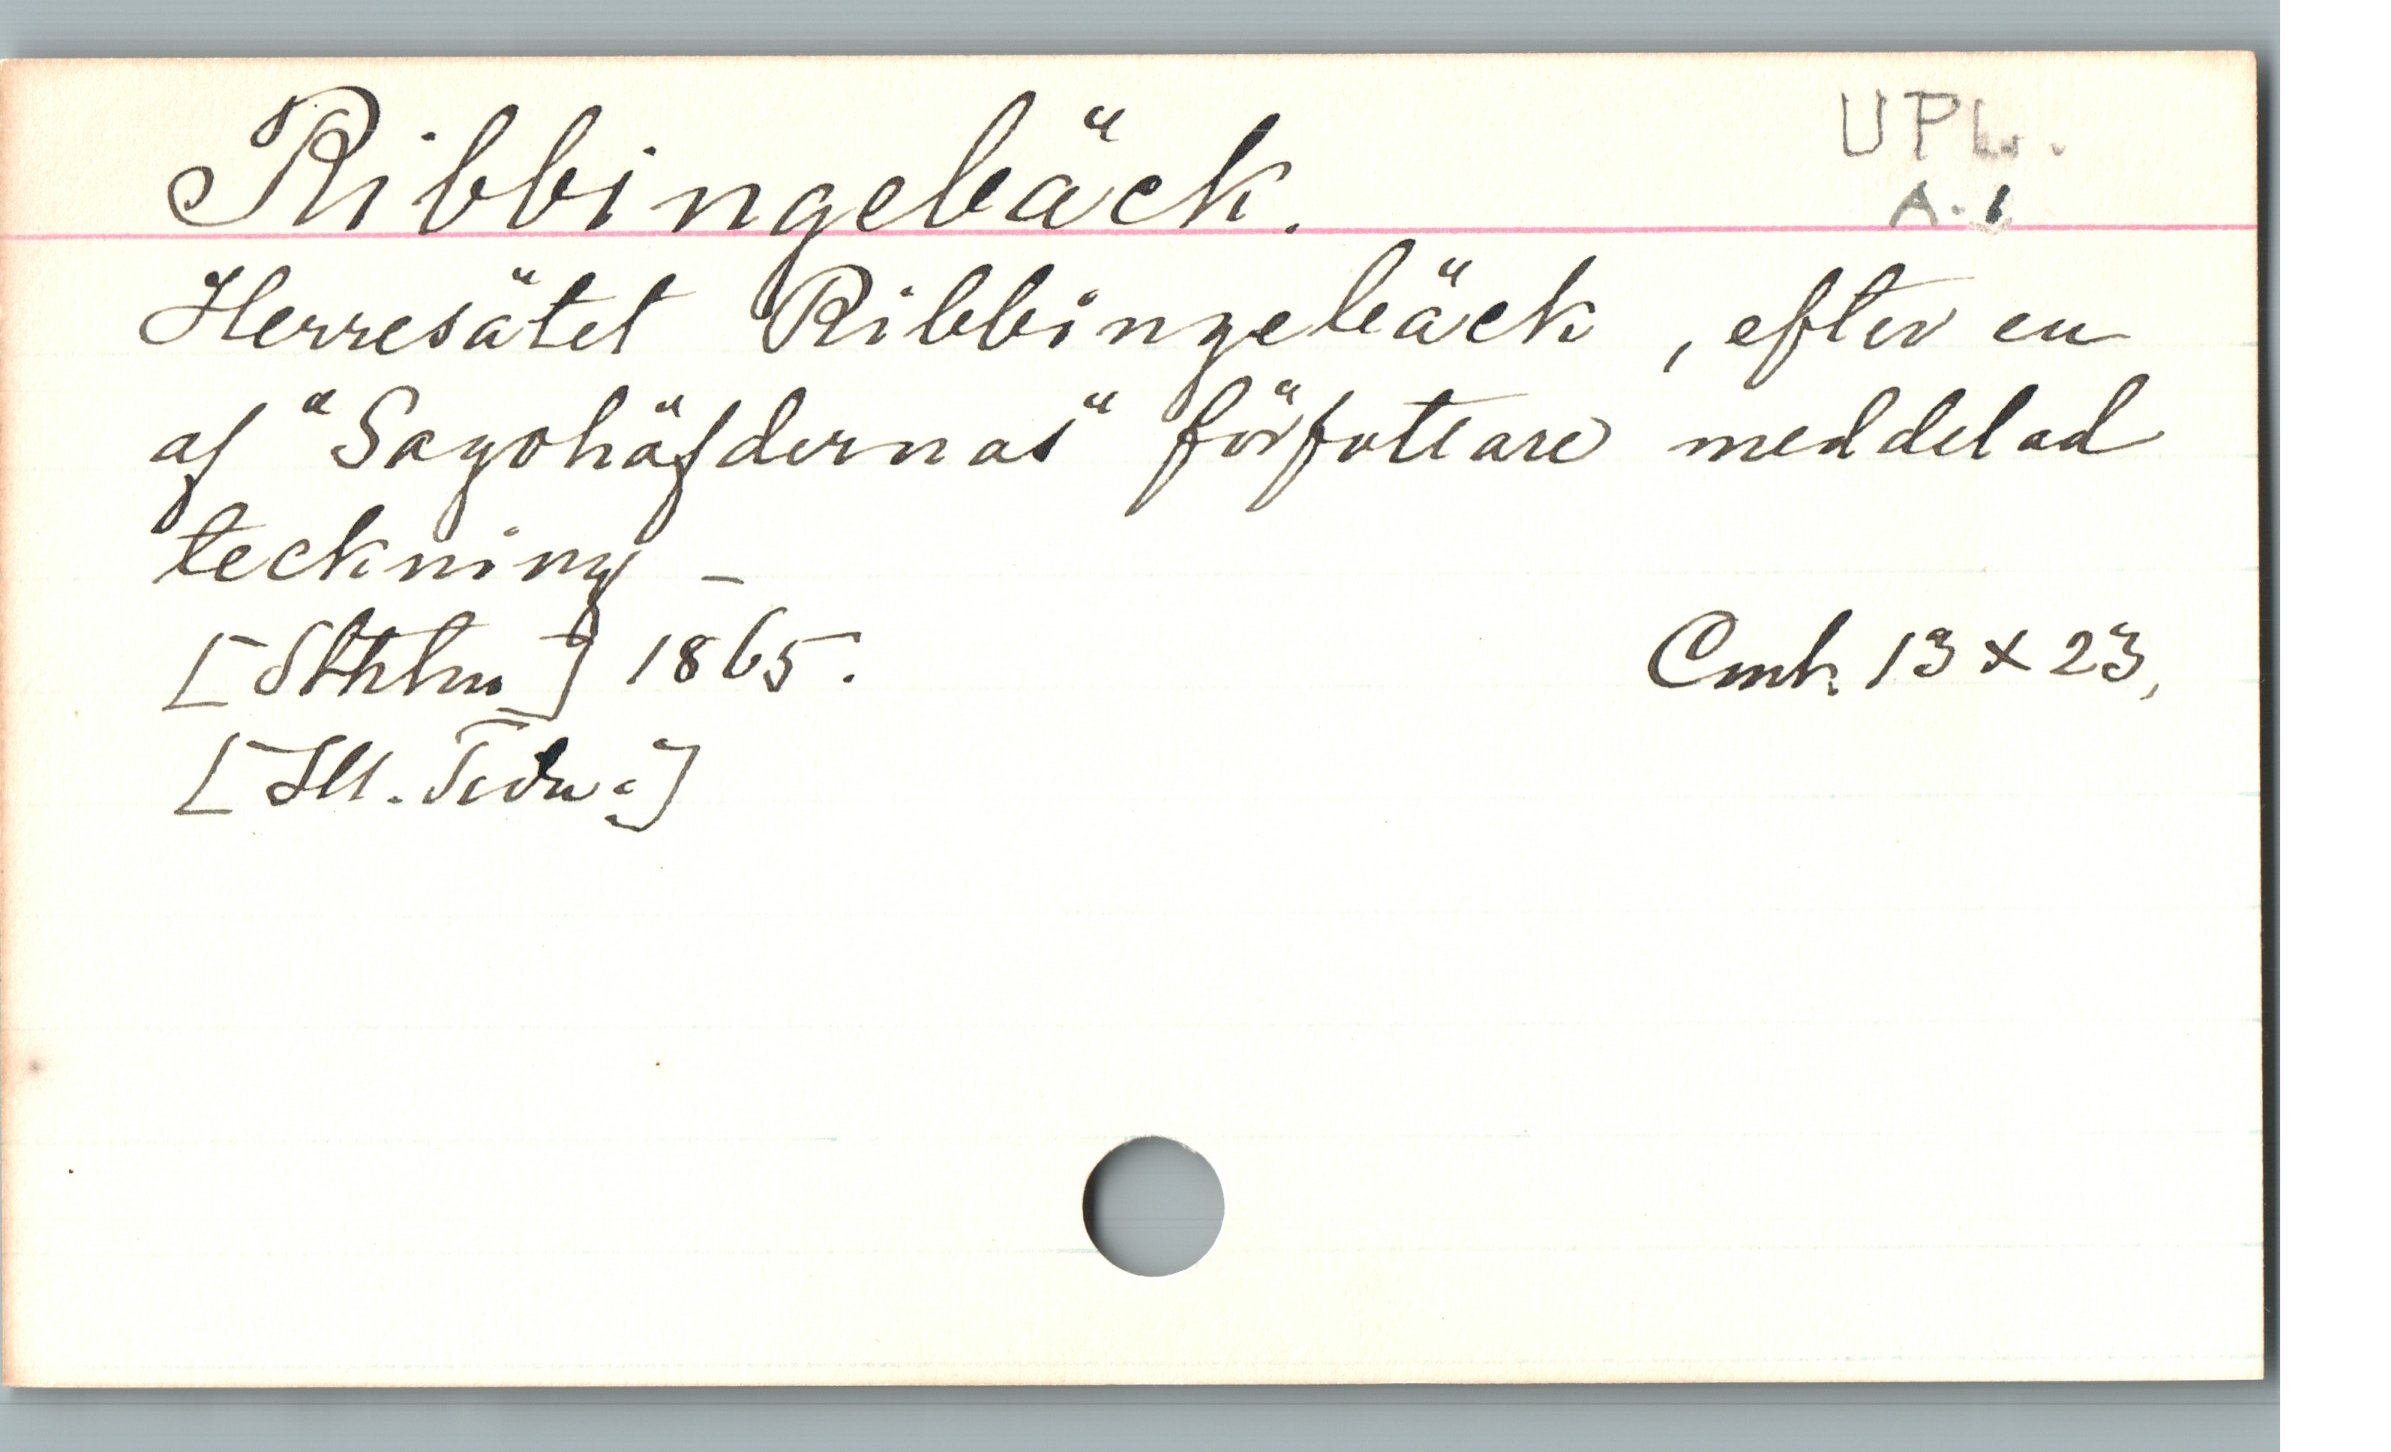 Ribbingebäck.
UPL.
A. 1
Herresätet Ribbingebäck, efter en
af "Sagohäfdernas" författare meddelad
teckning –
[Sthlm] 1865.
Cmh. 13 x 23,
[Ill. Tidn.]